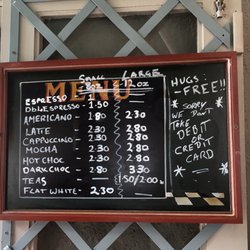 MENU
SMALL LARGE
8oz 12 oz
ESPRESSO
DbLESPRESSO - 1.50
AMERICANO - 1.80 2.30
LATTE 2.30 2.80
CAPPUCCINO - 2.30 2.80
MOCHA 2.30 2.80
HOT CHOC 2.30 2.80
DARK CHOC 2.80 3.30
TEAS 1.50/2.00
FLAT WHITE - 2.30
HUGS:
-FREE!!
SORRY
WE DON'T
TAKE
DEBIT
OR
CREDIT
CARD